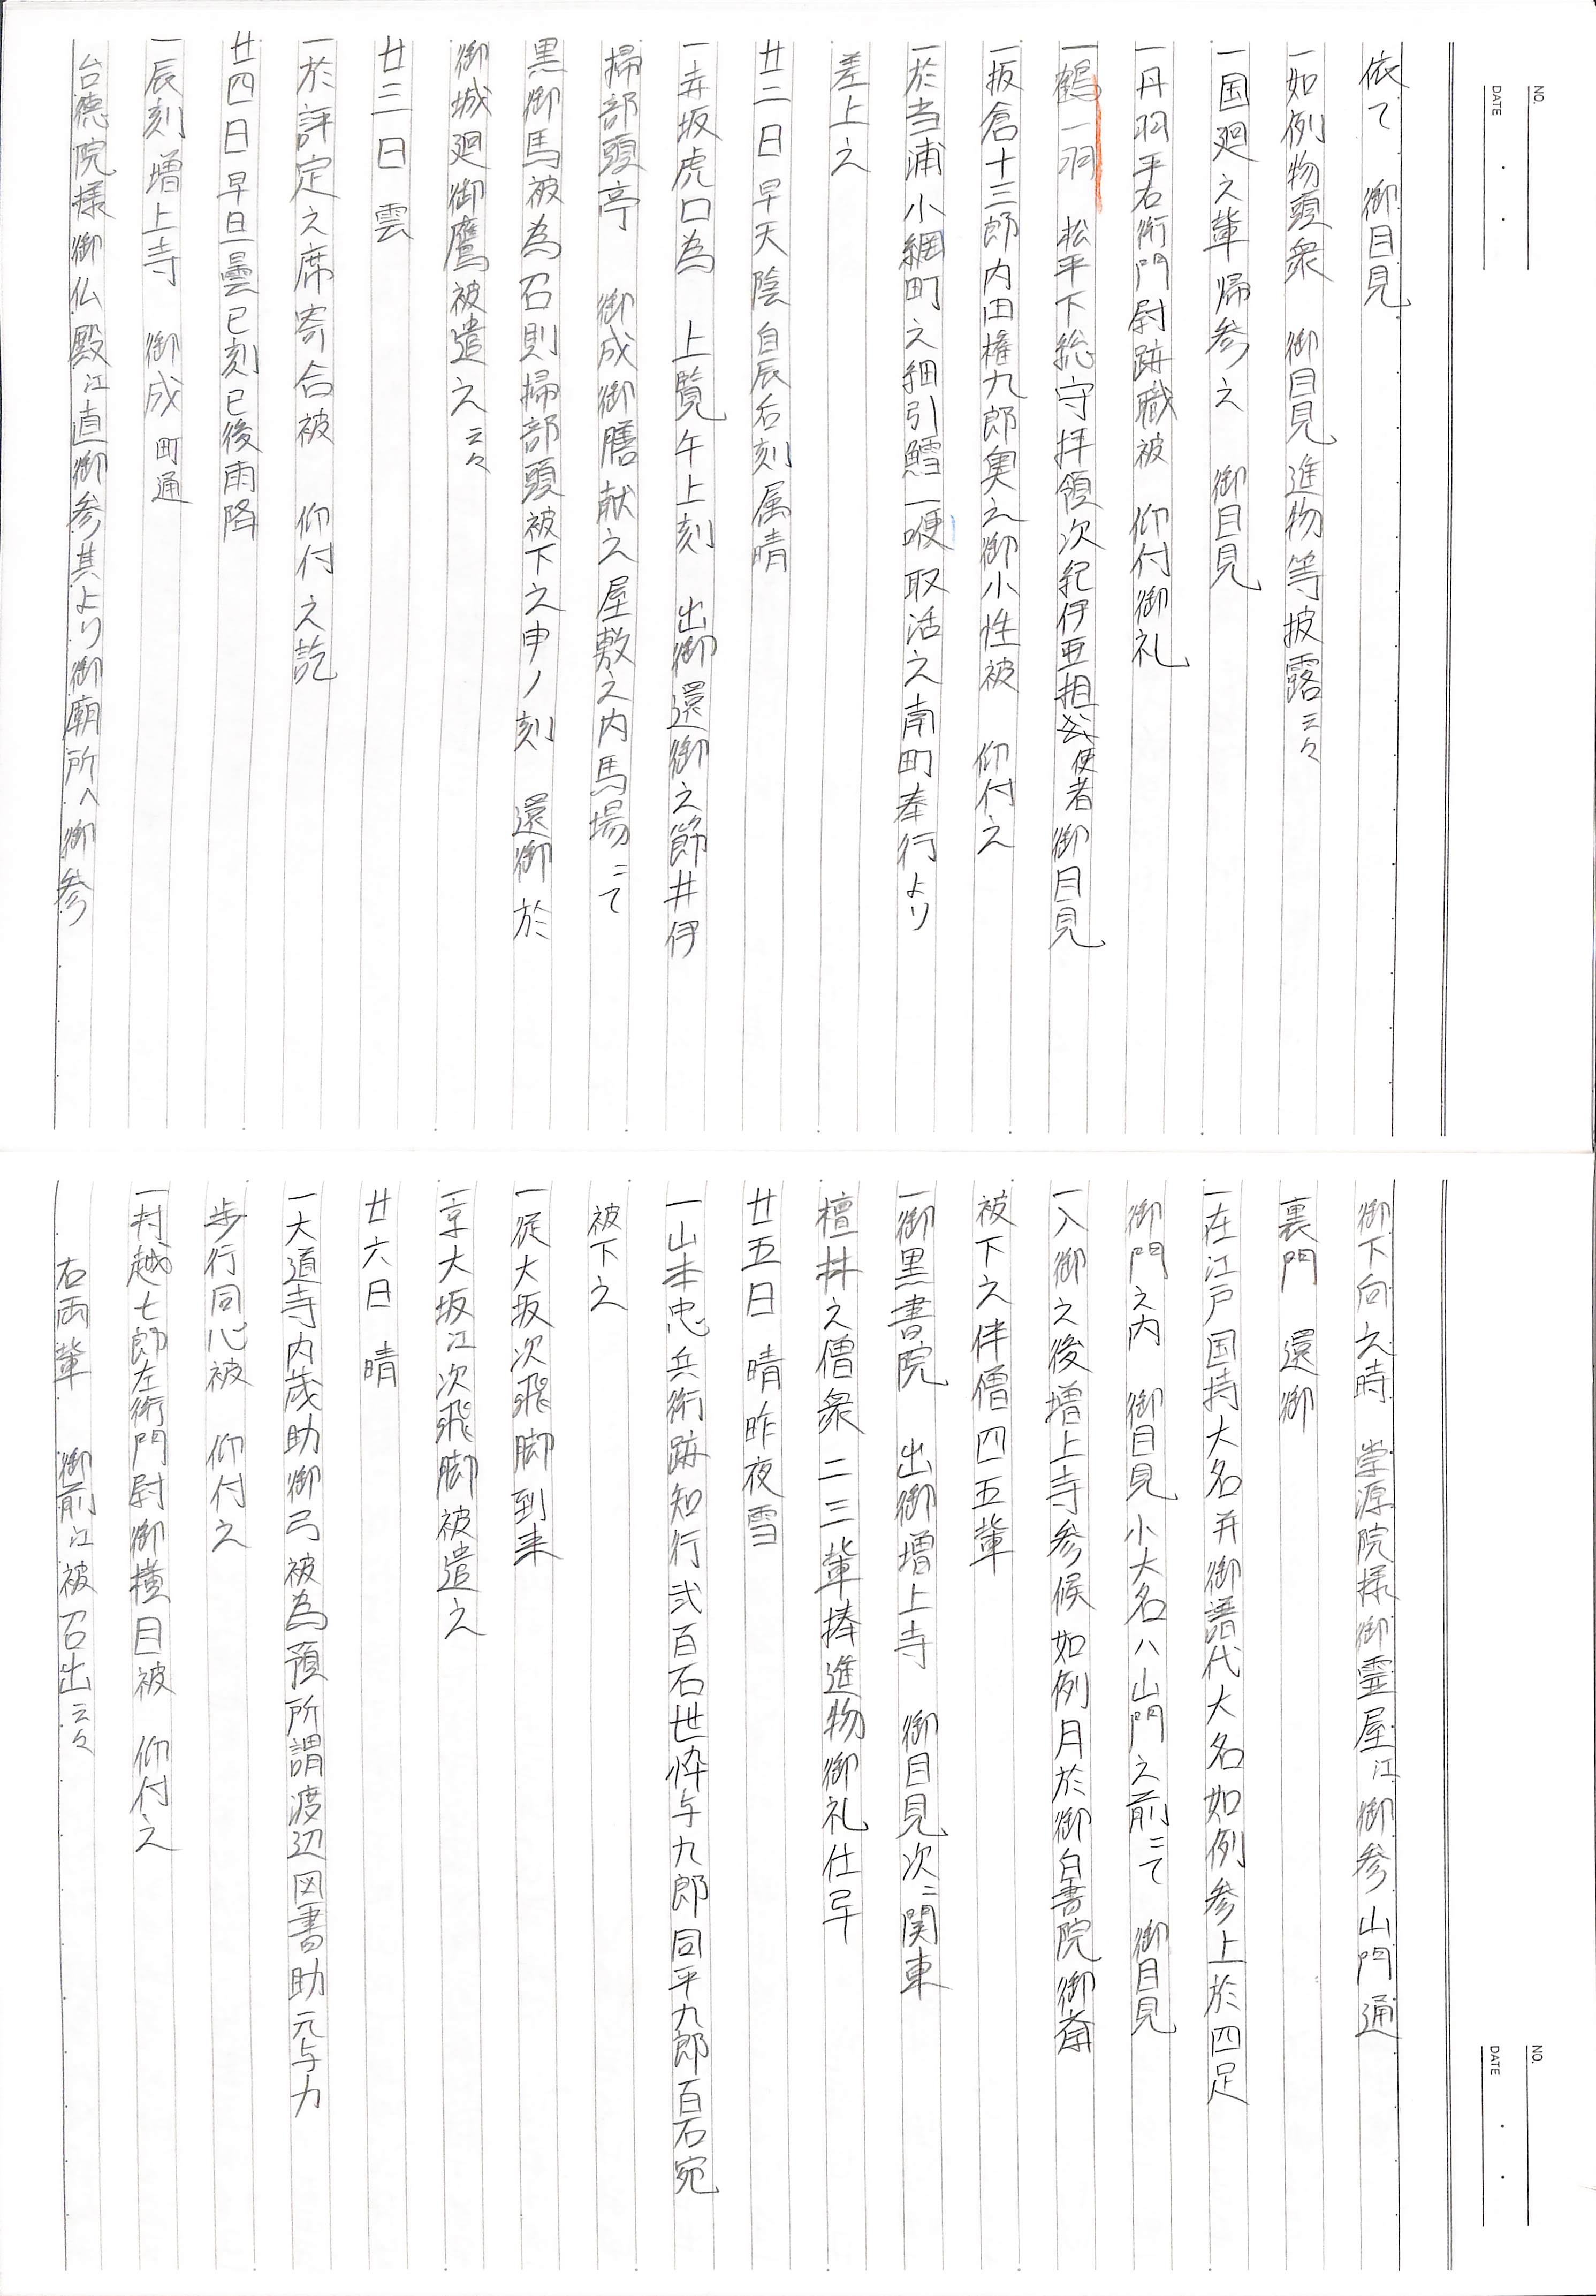 NO.
DATE
依て　御目見
一如例物頭衆　御目見進物等披露云々
一国廻之輩帰参之　御目見
一丹羽平右衛門尉跡職被　仰付御礼
一鶴一羽　松平下総守拝領次紀伊亜相公使者御目見
一板倉十三郎内田権九郎奥之御小性被　仰付之
一於当浦小網町之細引鱈一喉取活之南町奉行より
差上之
廿二日早天陰自辰后刻属晴
一赤坂虎口為　上覧午上刻　出御還御之節井伊
掃部頭亭　御成御膳献之屋敷之内馬場ニて
黒御馬被為召則掃部頭被下之申ノ刻　還御於
御城廻御鷹被遣之云々
廿三日　雲
一於評定之席寄合被　仰付之訖
廿四日早旦曇巳刻已後雨降
一辰刻増上寺　御成町通
台徳院様御仏殿江直御参其より御廟所へ御参
NO.
DATE
御下向之時　崇源院様御霊屋江御参山門通
裏門　還御
一在江戸国持大名并御譜代大名如例参上於四足
御門之内　御目見小大名ハ山門之前ニて　御目見
一入御之後増上寺参候如例月於御白書院御斎
被下之伴僧四五輩
一御黒書院　出御増上寺　御目見次ニ関東
檀林之僧衆二三輩捧進物御礼仕早
廿五日　晴昨夜雪
一山本忠兵衛跡知行弐百石世悴与九郎同平九郎百石宛
被下之
一従大坂次飛脚到来
一京大坂江次飛脚被遣之
廿六日　晴
一大道寺内蔵助御弓被為預所謂渡辺図書助元与力
歩行同心被　仰付之
一村越七郎左衛門尉御横目被　仰付之
右両輩　御前江被召出云々